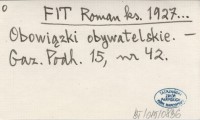 FIT Roman ks. 1927...
Obowiązki obywatelskie. –
Gaz. Podh. 15, nr 42.